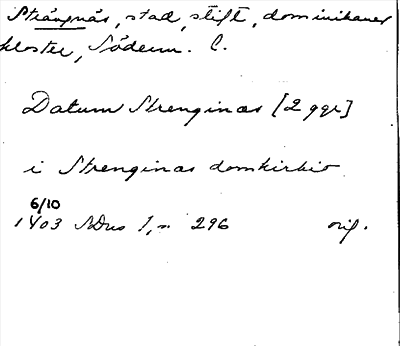 Strängnäs, stad, stift, dominikaner
kloster, Söderm. C.
Datum Strenginæs [2 ggr]
i Strenginæs domkirkio
6/10
1403 SDns 1, n 296 orig.